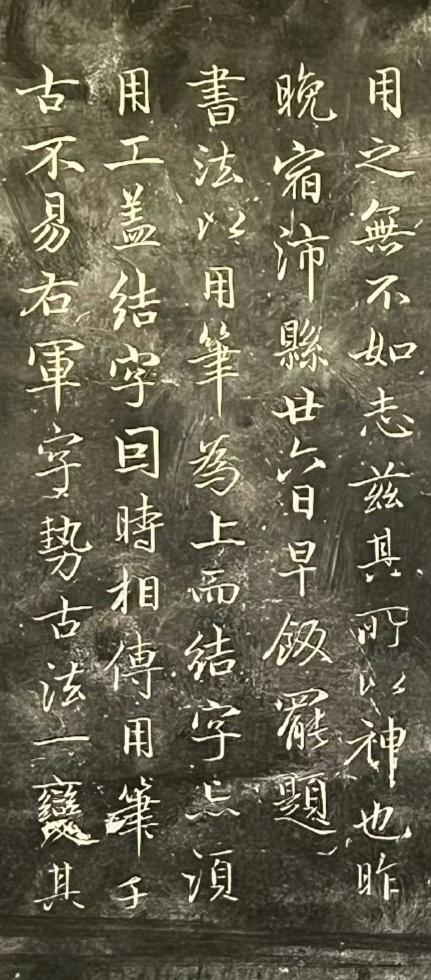 用之無不如志茲其所以神也昨
晚宿沛縣廿六日早飯罷題
書法以用筆為上而結字亦須
用工蓋結字因時相傳用筆千
古不易右軍字勢古法一變其